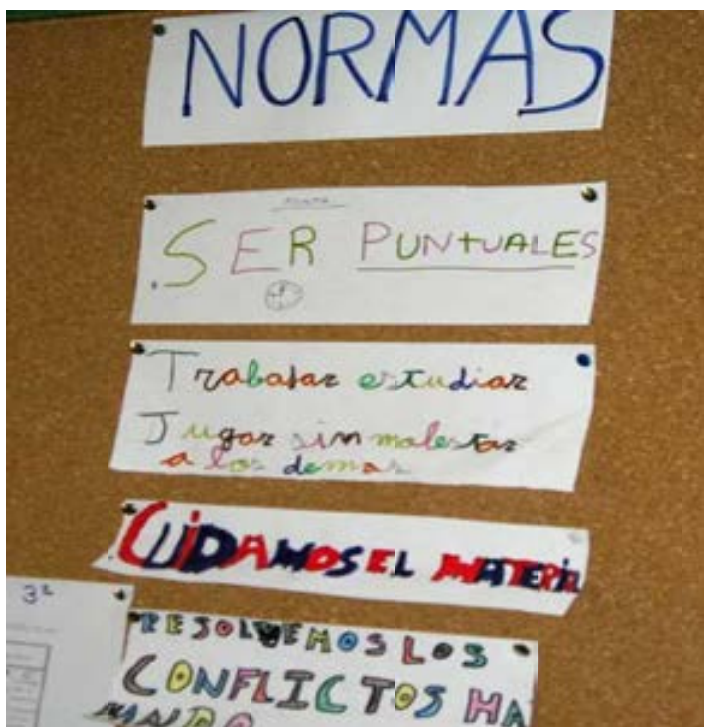 NORMAS
SER PUNTUALES
Trabajar estudiar
Jugar sin molestar
a los demas
CUIDAMOS EL MATERIAL
3º
RESOLVEMOS LOS
CONFLICTOS HA